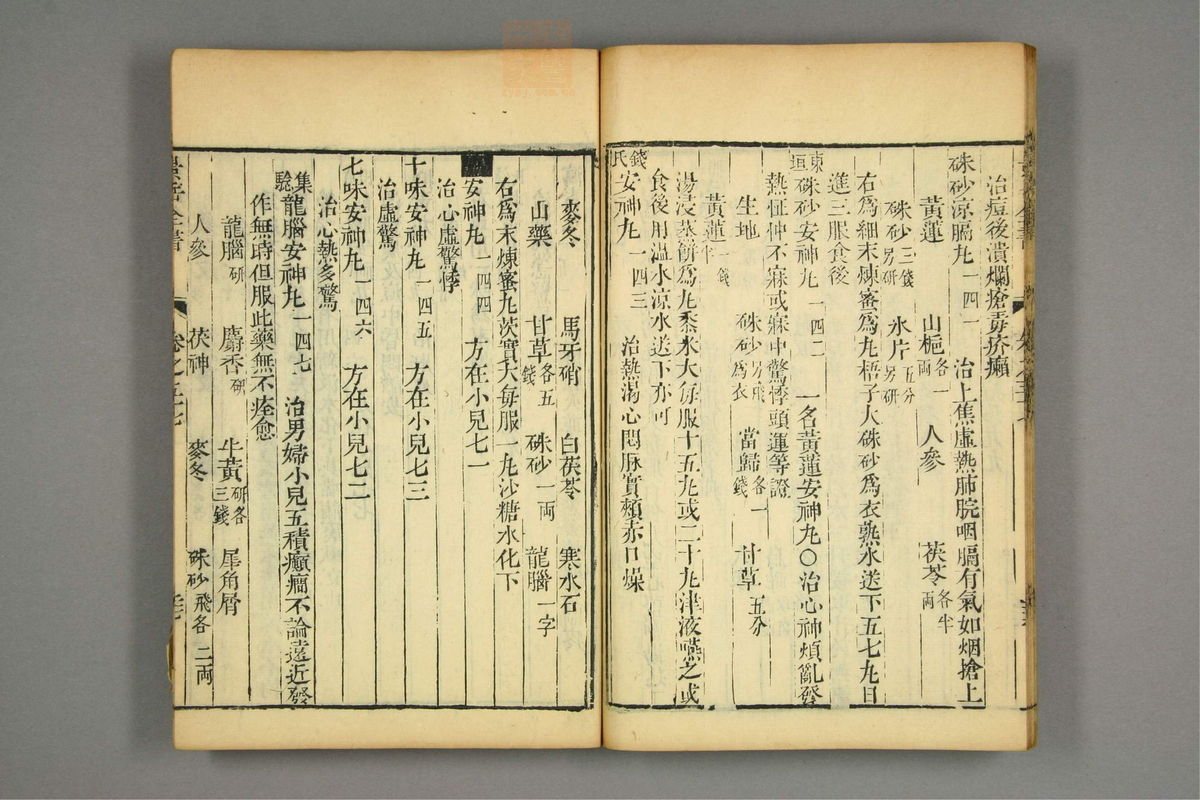 治痘後潰爛瘡毒疥癩
硃砂凉膈丸一四一　治上焦虛熱肺脘咽膈有氣如烟搶上
黃連　山梔各一兩　人參　茯苓各半兩
硃砂三錢另研　氷片五分另研
右爲細末煉蜜爲丸梧子大硃砂爲衣熟水送下五七丸日
進三服食後
東垣硃砂安神丸一四二　一名黃連安神丸○治心神煩亂發
熱怔忡不寐或寐中驚悸頭運等證
生地　硃砂另飛爲衣　當歸各一錢　甘草五分
黃蓮一錢半
湯浸蒸餅爲丸黍米大每服十五丸或二十丸津液嚥之或
食後用温水凉水送下亦可
錢氏安神丸一四三　治熱渴心悶脉實頰赤口燥
麥冬　馬牙硝　白茯苓　寒水石
山藥　甘草各五錢　硃砂一兩　龍腦一字
右爲末煉蜜丸芡實大每服一丸沙糖水化下
安神丸一四四　方在小兒七一
治心虛驚悸
十味安神丸一四五　方在小兒七三
治虛驚
七味安神丸一四六　方在小兒七二
治心熱多驚
集驗龍腦安神丸一四七　治男婦小兒五積癲癎不論遠近發
作無時但服此藥無不痊愈
龍腦研　麝香研　牛黃研各三錢　犀角屑
人參　茯神　麥冬　硃砂飛各二兩
景岳全書
卷之五十七